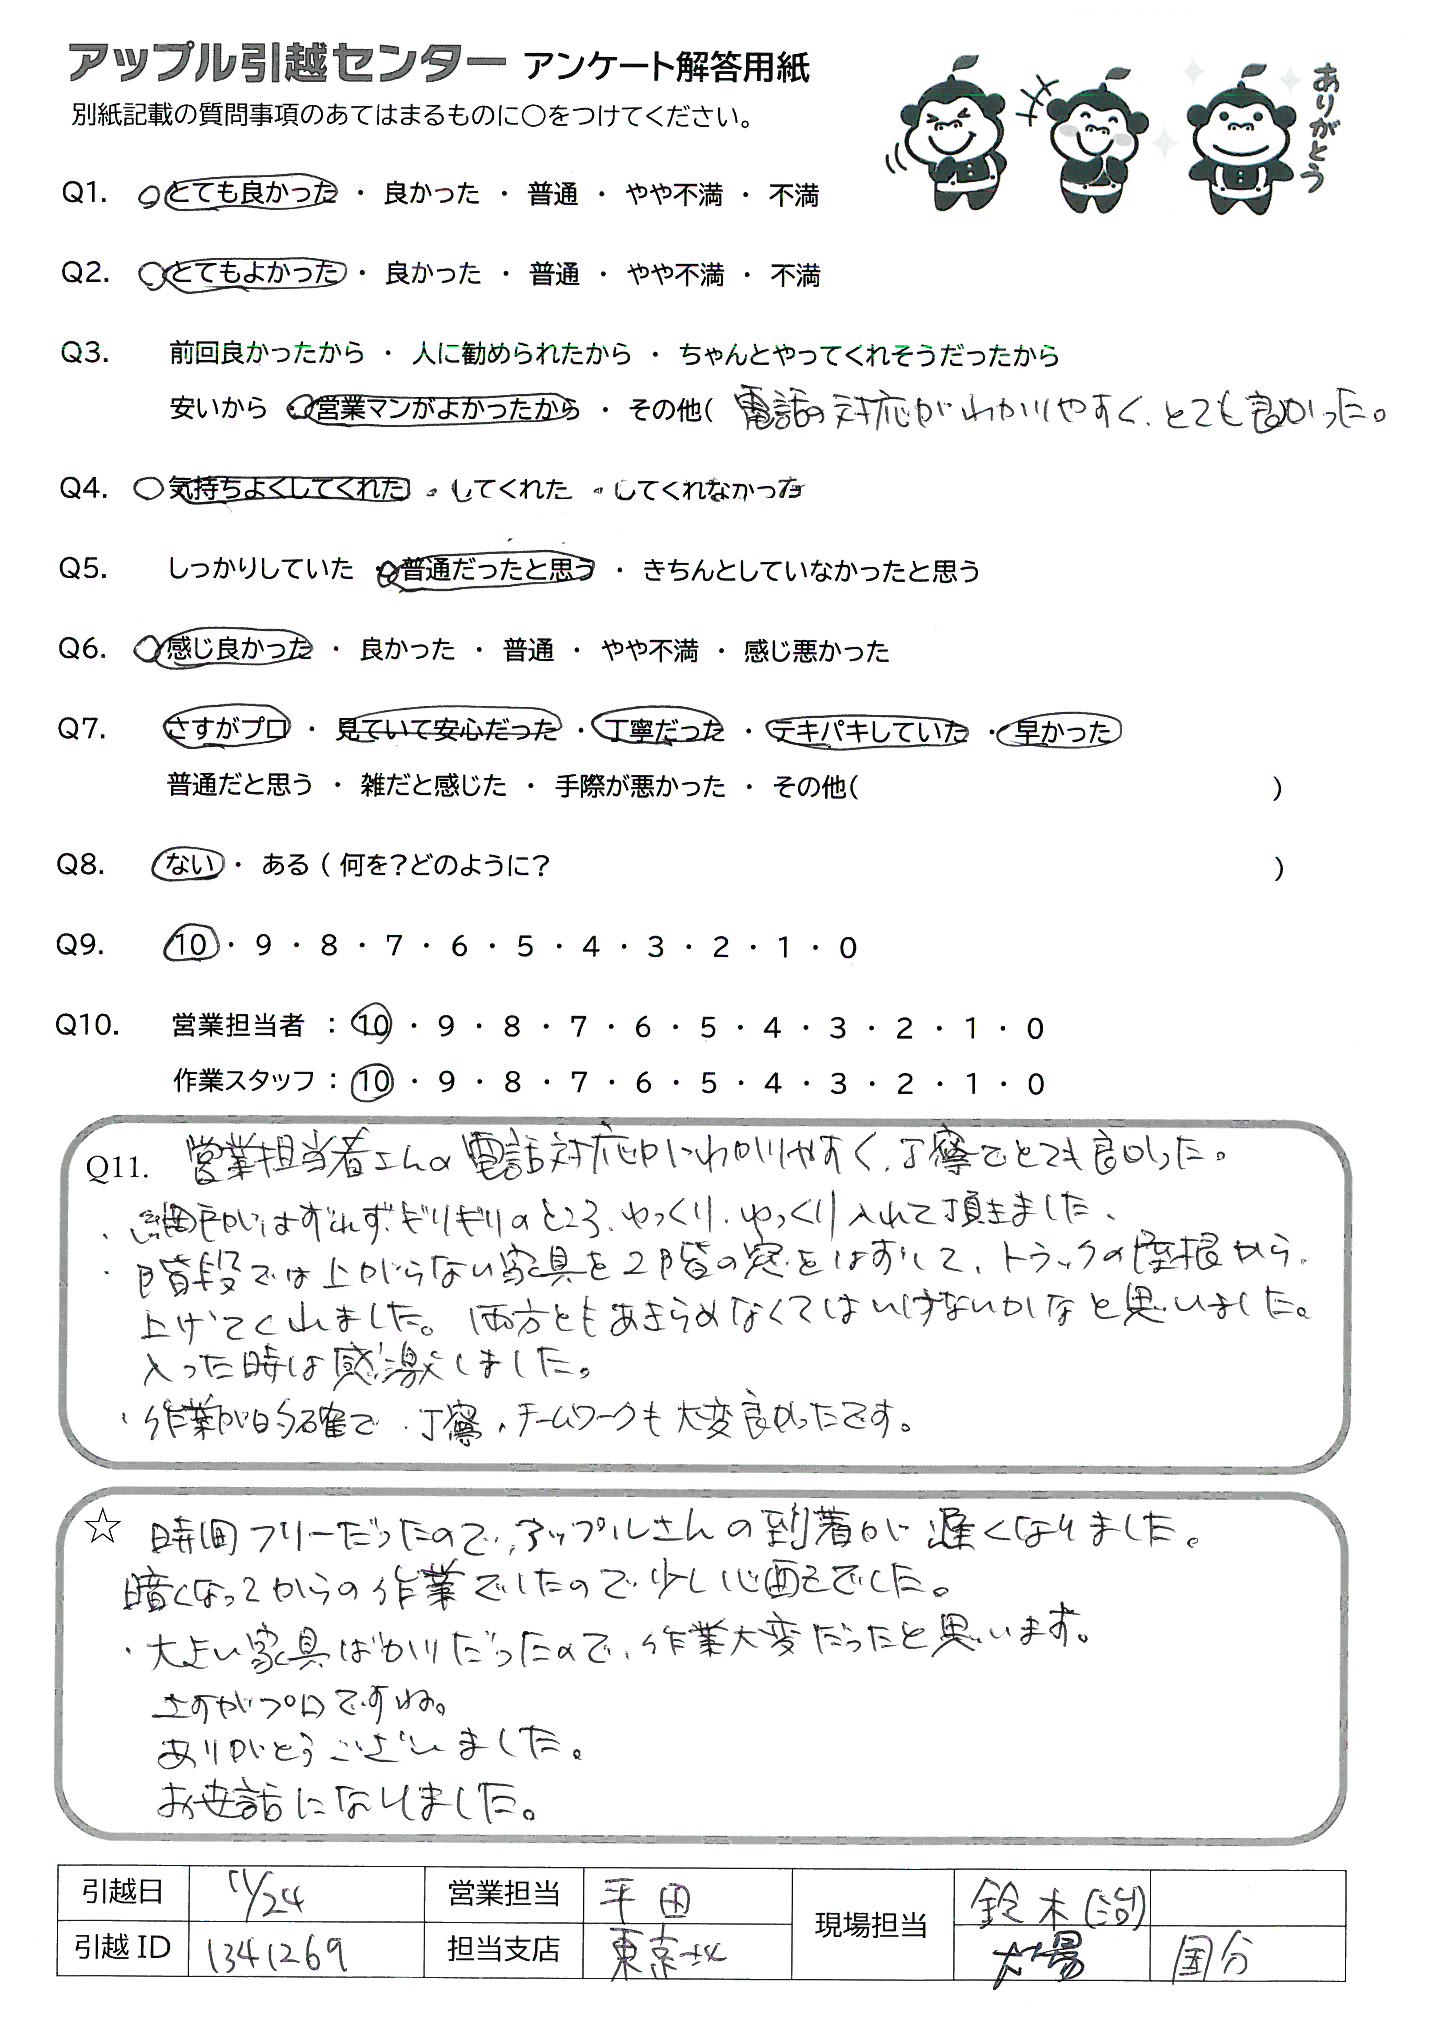 アップル引越センター アンケート解答用紙
別紙記載の質問事項のあてはまるものに○をつけてください。
ありがとう
Q1. とても良かった ・ 良かった ・ 普通 ・ やや不満 ・ 不満
Q2. とてもよかった ・ 良かった ・ 普通 ・ やや不満 ・ 不満
Q3. 前回良かったから ・ 人に勧められたから ・ ちゃんとやってくれそうだったから
安いから ・ 営業マンがよかったから ・ その他( 電話の対応がわかりやすく、とても良かった。
Q4. 気持ちよくしてくれた ・ してくれた ・ してくれなかった
Q5. しっかりしていた ・ 普通だったと思う ・ きちんとしていなかったと思う
Q6. 感じ良かった ・ 良かった ・ 普通 ・ やや不満 ・ 感じ悪かった
Q7. さすがプロ ・ 見ていて安心だった ・ 丁寧だった ・ テキパキしていた ・ 早かった
普通だと思う ・ 雑だと感じた ・ 手際が悪かった ・ その他( )
Q8. ない ・ ある ( 何を?どのように? )
Q9. 10 ・ 9 ・ 8 ・ 7 ・ 6 ・ 5 ・ 4 ・ 3 ・ 2 ・ 1 ・ 0
Q10. 営業担当者 : 10 ・ 9 ・ 8 ・ 7 ・ 6 ・ 5 ・ 4 ・ 3 ・ 2 ・ 1 ・ 0
作業スタッフ : 10 ・ 9 ・ 8 ・ 7 ・ 6 ・ 5 ・ 4 ・ 3 ・ 2 ・ 1 ・ 0
Q11. 営業担当者さんの電話対応がわかりやすく、丁寧でとても良かった。
・ はずれず、ギリギリのところ、ゆっくり、ゆっくり入れて頂きました、
・ 階段では上がらない家具を2階の窓をはずして、トラックの屋根から、
上げてくれました。両方ともあきらめなくてはいけないかなと思いました。
入った時は感激しました。
・ 作業が的確で、丁寧、チームワークも大変良かったです。
☆ 時間フリーだったので、アップルさんの到着が遅くなりました。
暗くなってからの作業でしたので少し心配でした。
・ 大きい家具ばかりだったので、作業大変だったと思います。
さすがプロですね。
ありがとうございました。
お世話になりました。
引越日 11/24 営業担当 平田 現場担当 鈴木(治)
引越ID 1341269 担当支店 東京北 大場 国分